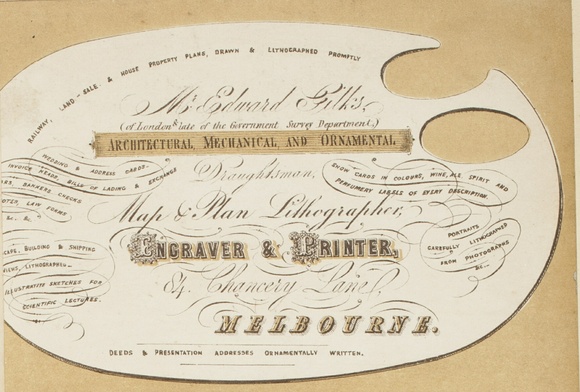 RAILWAY, LAND-SALE & HOUSE PROPERTY PLANS, DRAWN & LITHOGRAPHED PROMPTLY
Mr. Edward Gilks,
(of London & late of the Government Survey Department.)
ARCHITECTURAL, MECHANICAL, AND ORNAMENTAL
Draughtsman,
Map & Plan Lithographer,
ENGRAVER & PRINTER,
84, Chancery Lane,
MELBOURNE.
DEEDS & PRESENTATION ADDRESSES ORNAMENTALLY WRITTEN.
WEDDING & ADDRESS CARDS.
INVOICE HEADS, BILLS OF LADING & EXCHANGE
BANKERS CHECKS
LAW FORMS
&c. &c.
BUILDING & SHIPPING
LITHOGRAPHED.
ILLUSTRATIVE SKETCHES FOR
SCIENTIFIC LECTURES.
SHOW CARDS IN COLOURS, WINE, ALE SPIRIT AND
PERFUMERY LABELS OF EVERY DESCRIPTION.
PORTRAITS
CAREFULLY LITHOGRAPHED
FROM PHOTOGRAPHS
&c.